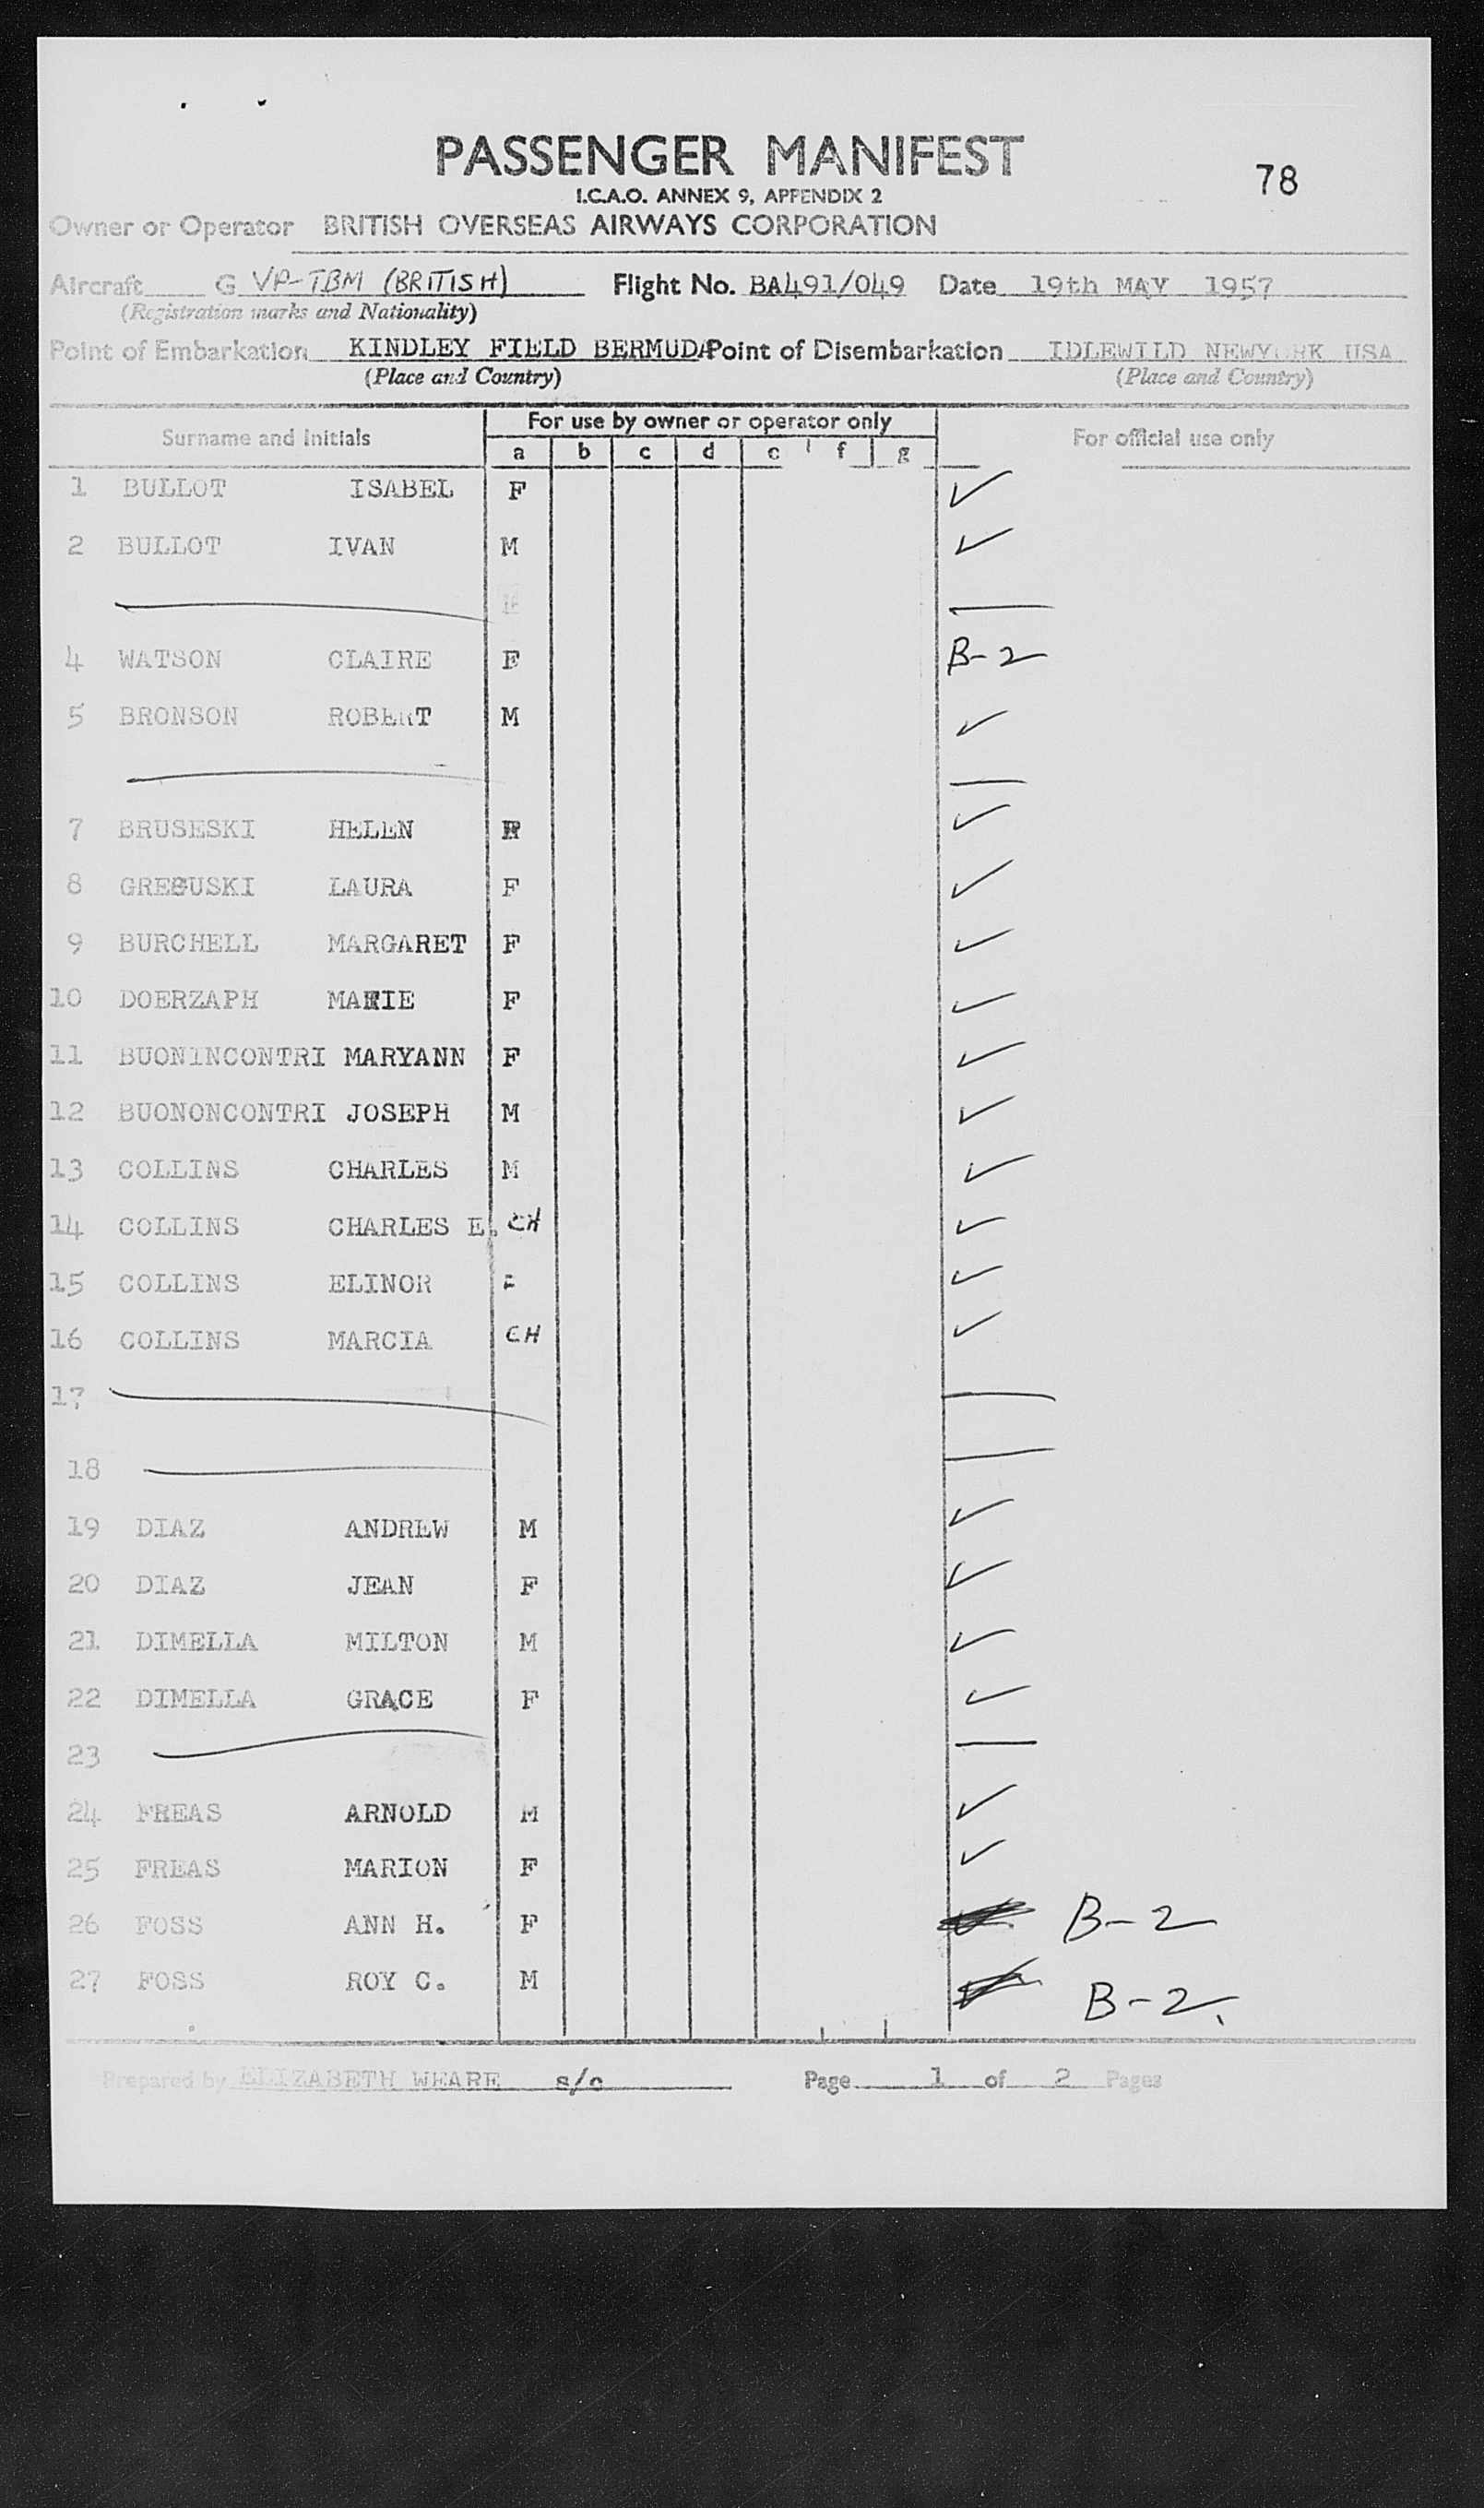 PASSENGER MANIFEST
I.C.A.O. ANNEX 9, APPENDIX 2
78
Owner or Operator BRITISH OVERSEAS AIRWAYS CORPORATION
Aircraft G VP-TBM (BRITISH) Flight No. BA491/049 Date 19th MAY 1957
(Registration marks and Nationality)
Point of Embarkation KINDLEY FIELD BERMUDA Point of Disembarkation IDLEWILD NEWYORK USA
(Place and Country) (Place and Country)
Surname and Initials For use by owner or operator only For official use only
a b c d e f g
1 BULLOT ISABEL F ✓
2 BULLOT IVAN M ✓
4 WATSON CLAIRE F B-2
5 BRONSON ROBERT M ✓
7 BRUSESKI HELEN F ✓
8 GREBUSKI LAURA F ✓
9 BURCHELL MARGARET F ✓
10 DOERZAPH MARIE F ✓
11 BUONINCONTRI MARYANN F ✓
12 BUONONCONTRI JOSEPH M ✓
13 COLLINS CHARLES M ✓
14 COLLINS CHARLES E. CH ✓
15 COLLINS ELINOR F ✓
16 COLLINS MARCIA CH ✓
17
18
19 DIAZ ANDREW M ✓
20 DIAZ JEAN F ✓
21 DIMELLA MILTON M ✓
22 DIMELLA GRACE F ✓
23
24 FREAS ARNOLD M ✓
25 FREAS MARION F ✓
26 FOSS ANN H. F B-2
27 FOSS ROY C. M B-2
Prepared by ELIZABETH WEARE s/c Page 1 of 2 Pages